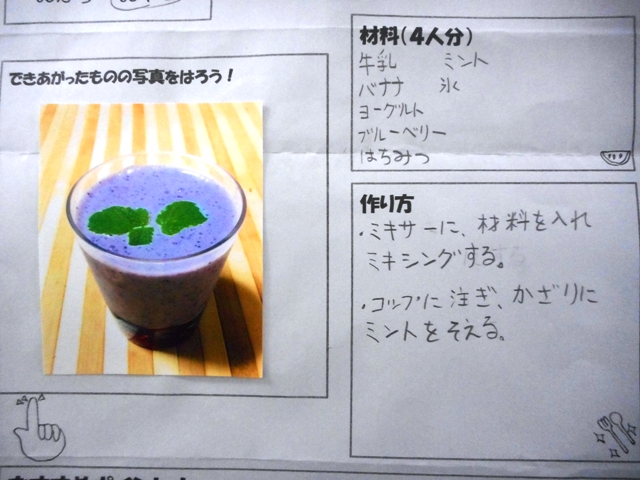 できあがったものの写真をはろう！
材料（4人分）
牛乳　ミント
バナナ　氷
ヨーグルト
ブルーベリー
はちみつ
作り方
・ミキサーに、材料を入れ
ミキシングする。
・コップに注ぎ、かざりに
ミントをそえる。